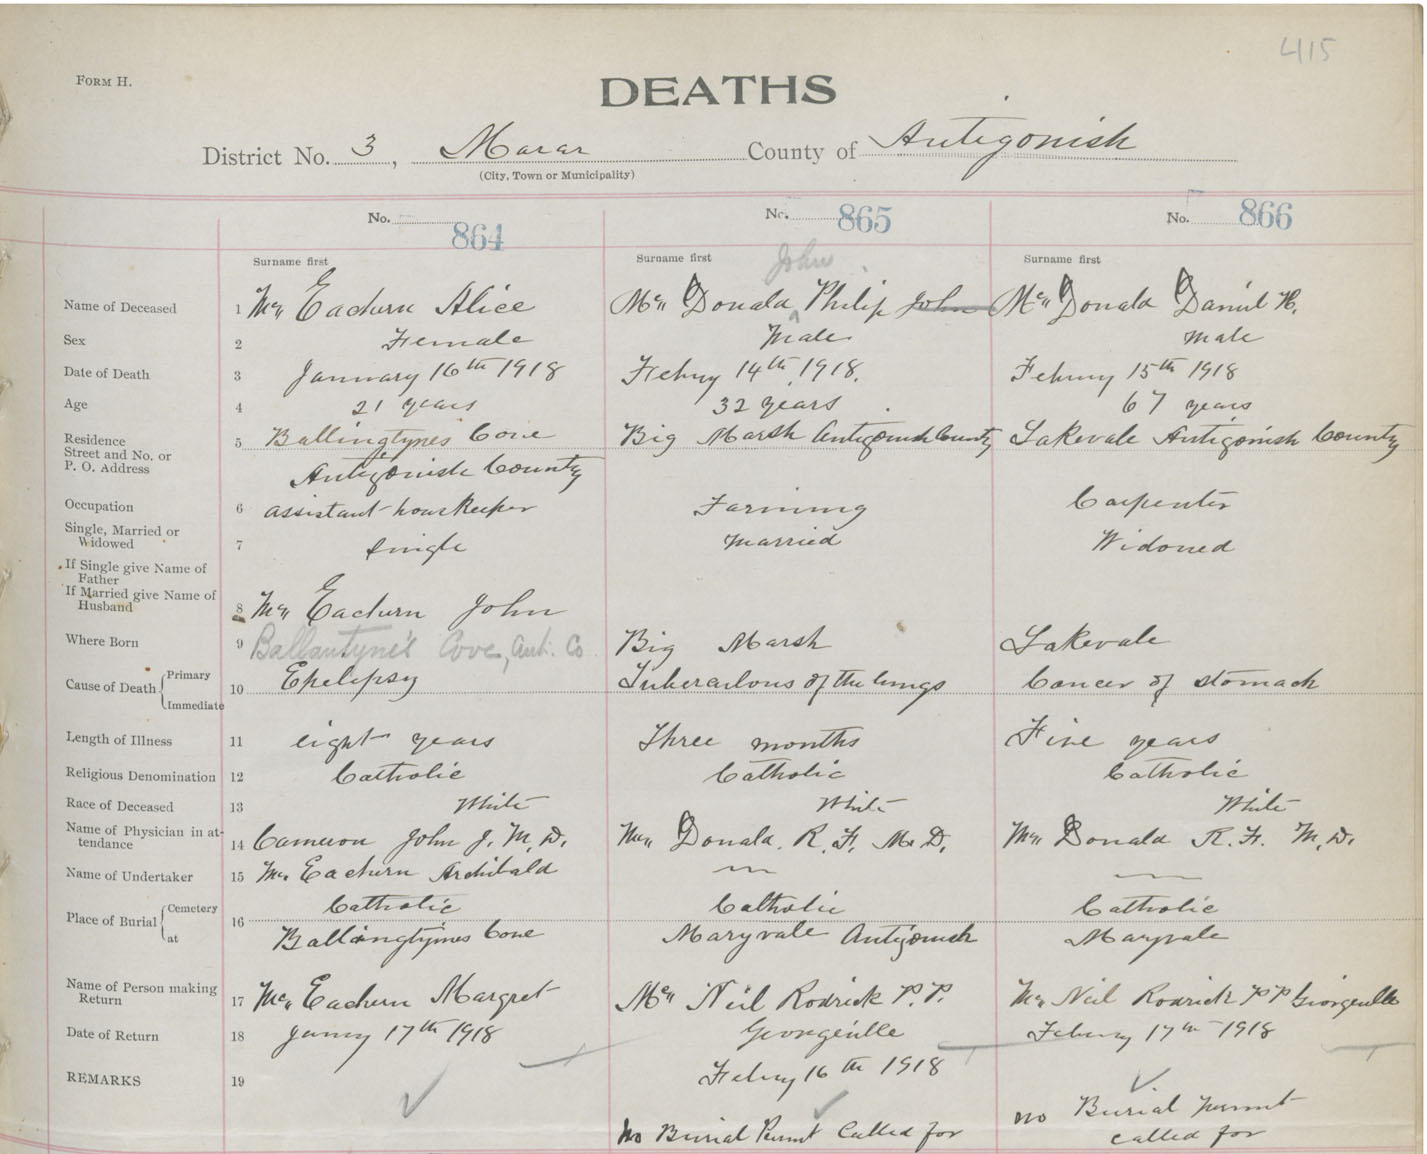 415
FORM H.
DEATHS
District No. 3, Marar County of Antigonish
(City, Town or Municipality)
No. 864 No. 865 No. 866
Surname first Surname first John Surname first
Name of Deceased 1 Mc Eachern Alice Mc Donald Philip John Mc Donald Daniel H.
Sex 2 Female Male Male
Date of Death 3 January 16th 1918 Febury 14th 1918. Febuury 15th 1918
Age 4 21 years 32 years 67 years
Residence
Street and No. or
P. O. Address
5 Ballingtynes Cove Big Marsh Antigonish County Lakevale Antigonish County
Antigonish County
Occupation 6 assistant houskeeper Farming Carpenter
Single, Married or
Widowed 7 single Married Widowed
If Single give Name of
Father
If Married give Name of
Husband 8 Mc Eachern John
Where Born 9 Ballantyne's Cove, Ant. Co Big Marsh Lakevale
Cause of Death { Primary
Immediate
10 Epelipsy Tuberculous of the lungs Cancer of stomach
Length of Illness 11 eight years Three months Five years
Religious Denomination 12 Catholic Catholic Catholic
Race of Deceased 13 White White White
Name of Physician in at-
tendance 14 Cameron John J. M. D. Mc Donald. R. F. M. D. Mc Donald R. F. M. D.
Name of Undertaker 15 Mc Eachern Archibald
Place of Burial { Cemetery
at
16 Catholic Catholic Catholic
Ballingtynes Cove Maryvale Antigonish Maryvale
Name of Person making
Return 17 Mc Eachern Margret Mc Neil Rodrick P. P. Mc Neil Rodrick P P Georgeville
Date of Return 18 January 17th 1918 Georgeville Febury 17th 1918
REMARKS 19 Febury 16th 1918
No Burial Permit Called for no Burial permit
called for